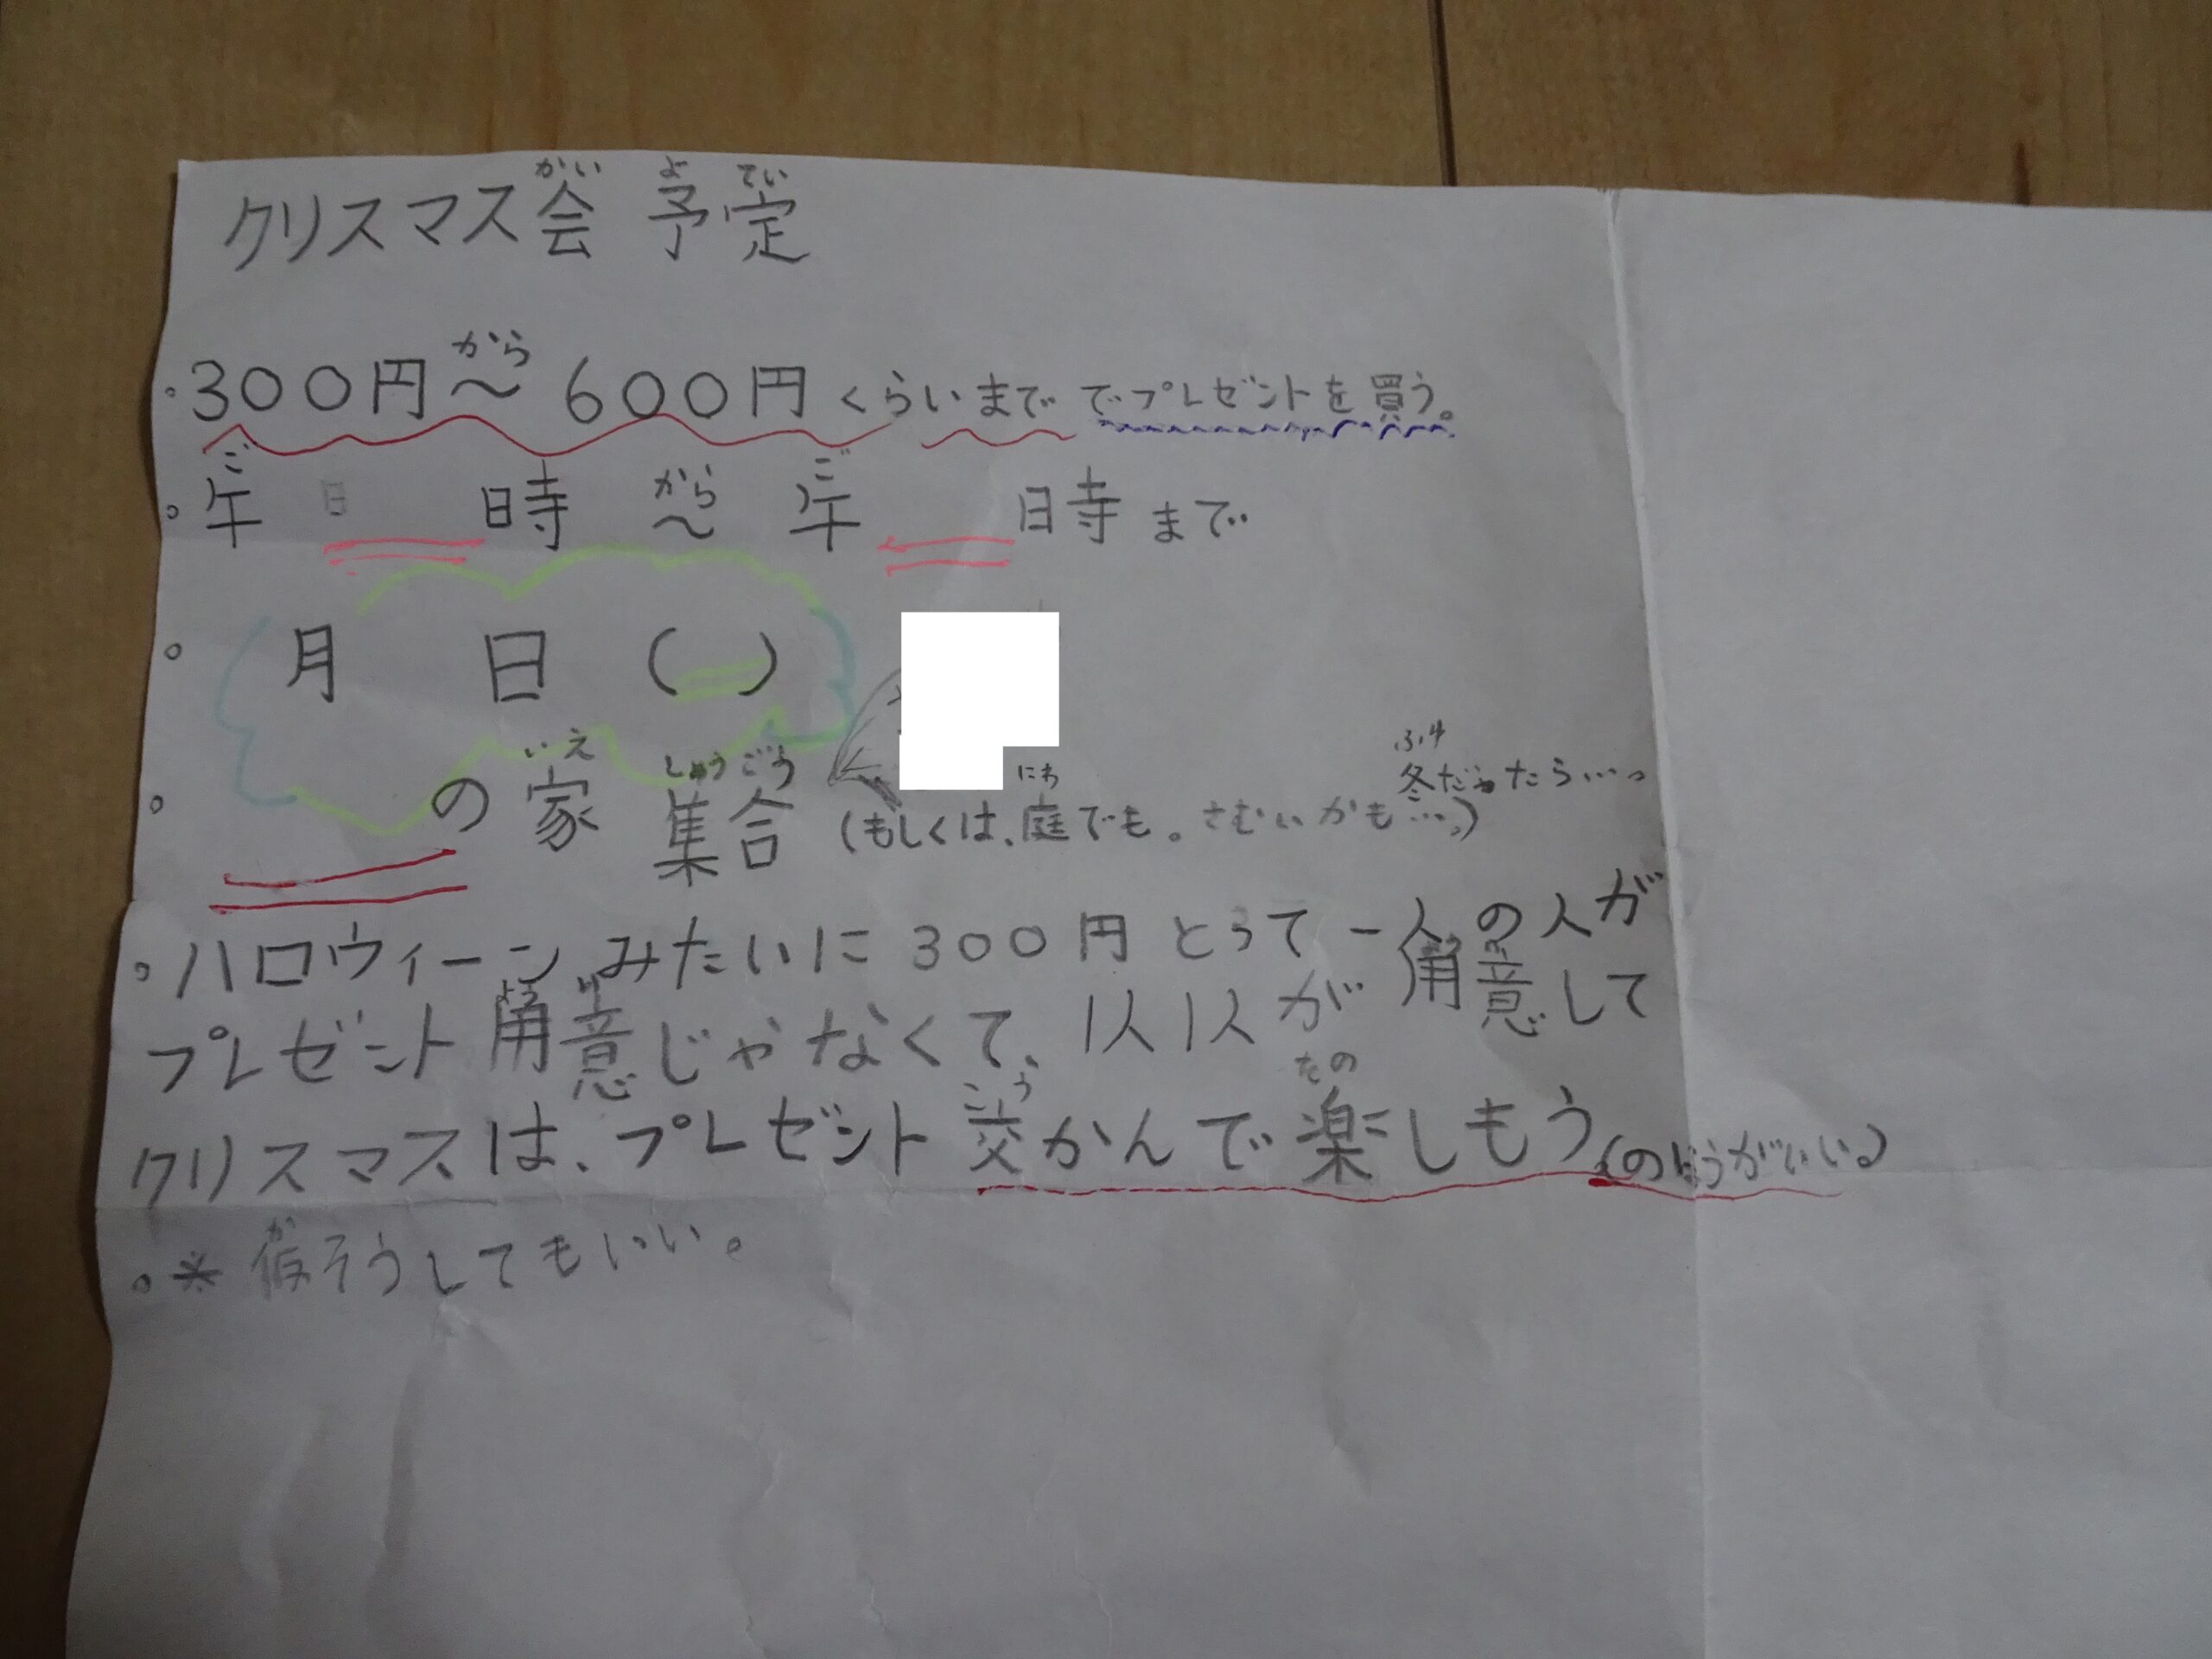 クリスマス会 予定
かい よ てい
・300円〜600円くらいまででプレゼントを買う。
から
・午 日 時 〜 午 時まで
ご から ご
・ 月 日 ( )
・ の家 集合 (もしくは、庭でも。さむいかも…。)
いえ しゅうごう にわ
冬だったらー…。
ふゆ
・ハロウィーンみたいに300円とって一人の人が
プレゼント用意じゃなくて、1人1人が用意して
クリスマスは、プレゼント交かんで楽しもう(のほうがいい。)
こう たの
・※仮そうしてもいい。
か